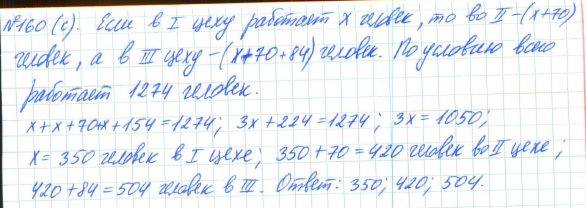 №160 (с). Если в I цеху работает x человек, то во II – (x+70)
человек, а в III цеху – (x+70+84) человек. По условию всего
работает 1274 человек.
x+x+70+x+154=1274; 3x+224=1274; 3x=1050;
x=350 человек в I цехе; 350+70=420 человек во II цехе;
420+84=504 человек в III. Ответ: 350; 420; 504.